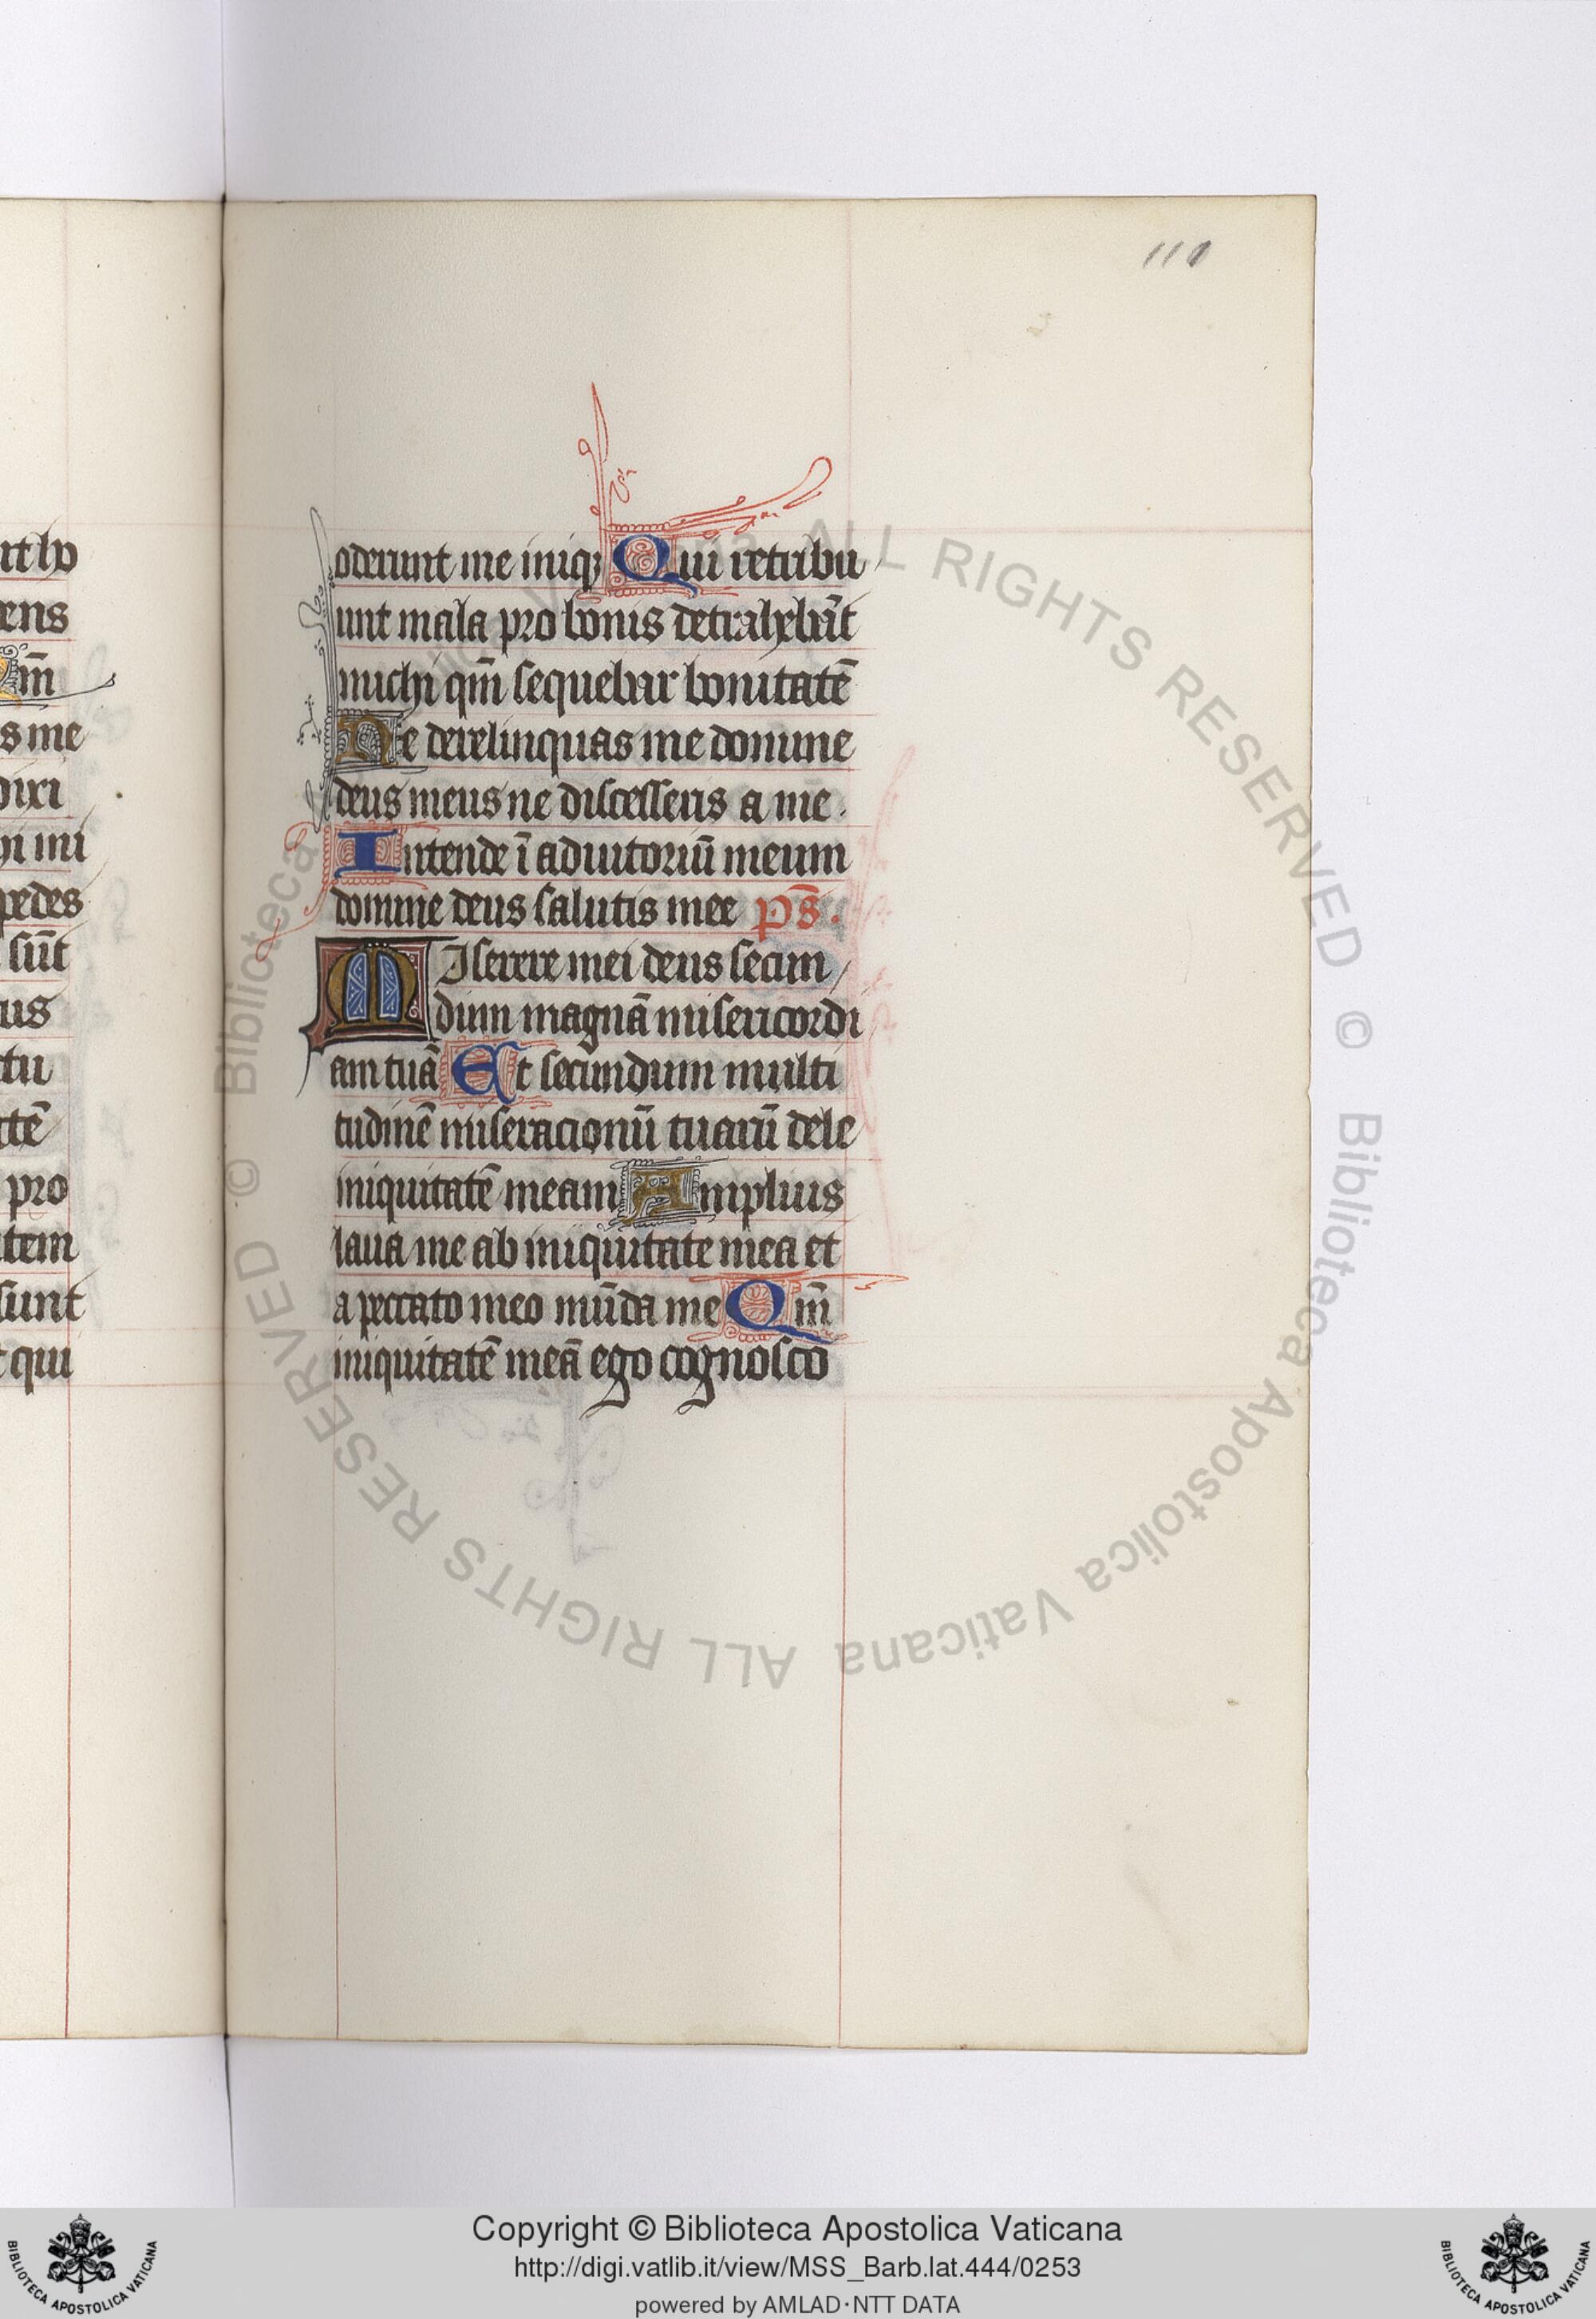 110
rt lo
ens
Qm̄
s me
dixi
hi mi
pedes
sūt
us
tu
tē
pro
tem
sunt
t qui
oderunt me iniqꝫ Qui retribu
unt mala pro bonis detrahebāt
michi qm̄ sequebar bonitatē
Ne derelinquas me domine
deus meus ne discesseris a me.
Intende ī adiutoriū meum
domine deus salutis mee p̄s.
Miserere mei deus secun/
dum magnā misericordi
am tuā Et secundum multi
tudinē miseracionū tuarū dele
iniquitatē meam Amplius
laua me ab iniquitate mea et
a peccato meo mūda me Qm̄
iniquitatē meā ego cognosco
© Biblioteca Apostolica Vaticana ALL RIGHTS RESERVED © Biblioteca Apostolica Vaticana ALL RIGHTS RESERVED
Copyright © Biblioteca Apostolica Vaticana
http://digi.vatlib.it/view/MSS_Barb.lat.444/0253
powered by AMLAD·NTT DATA
BIBLIOTECA APOSTOLICA VATICANA
BIBLIOTECA APOSTOLICA VATICANA